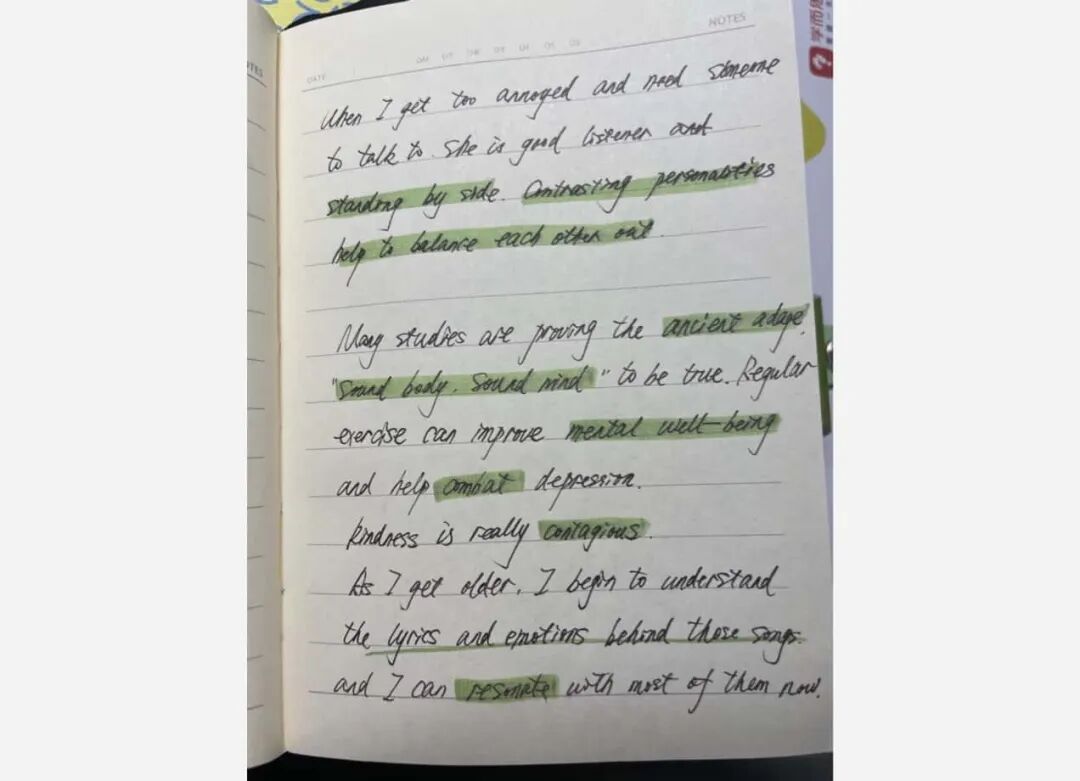 NOTES
DATE
When I get too annoyed and need someone
to talk to. She is good listener and
standing by side. Contrasting personalities
help to balance each other out.
Many studies are proving the ancient adage,
"Sound body. Sound mind" to be true. Regular
exercise can improve mental well-being
and help combat depression.
kindness is really contagious.
As I get older, I begin to understand
the lyrics and emotions behind those songs.
and I can resonate with most of them now.